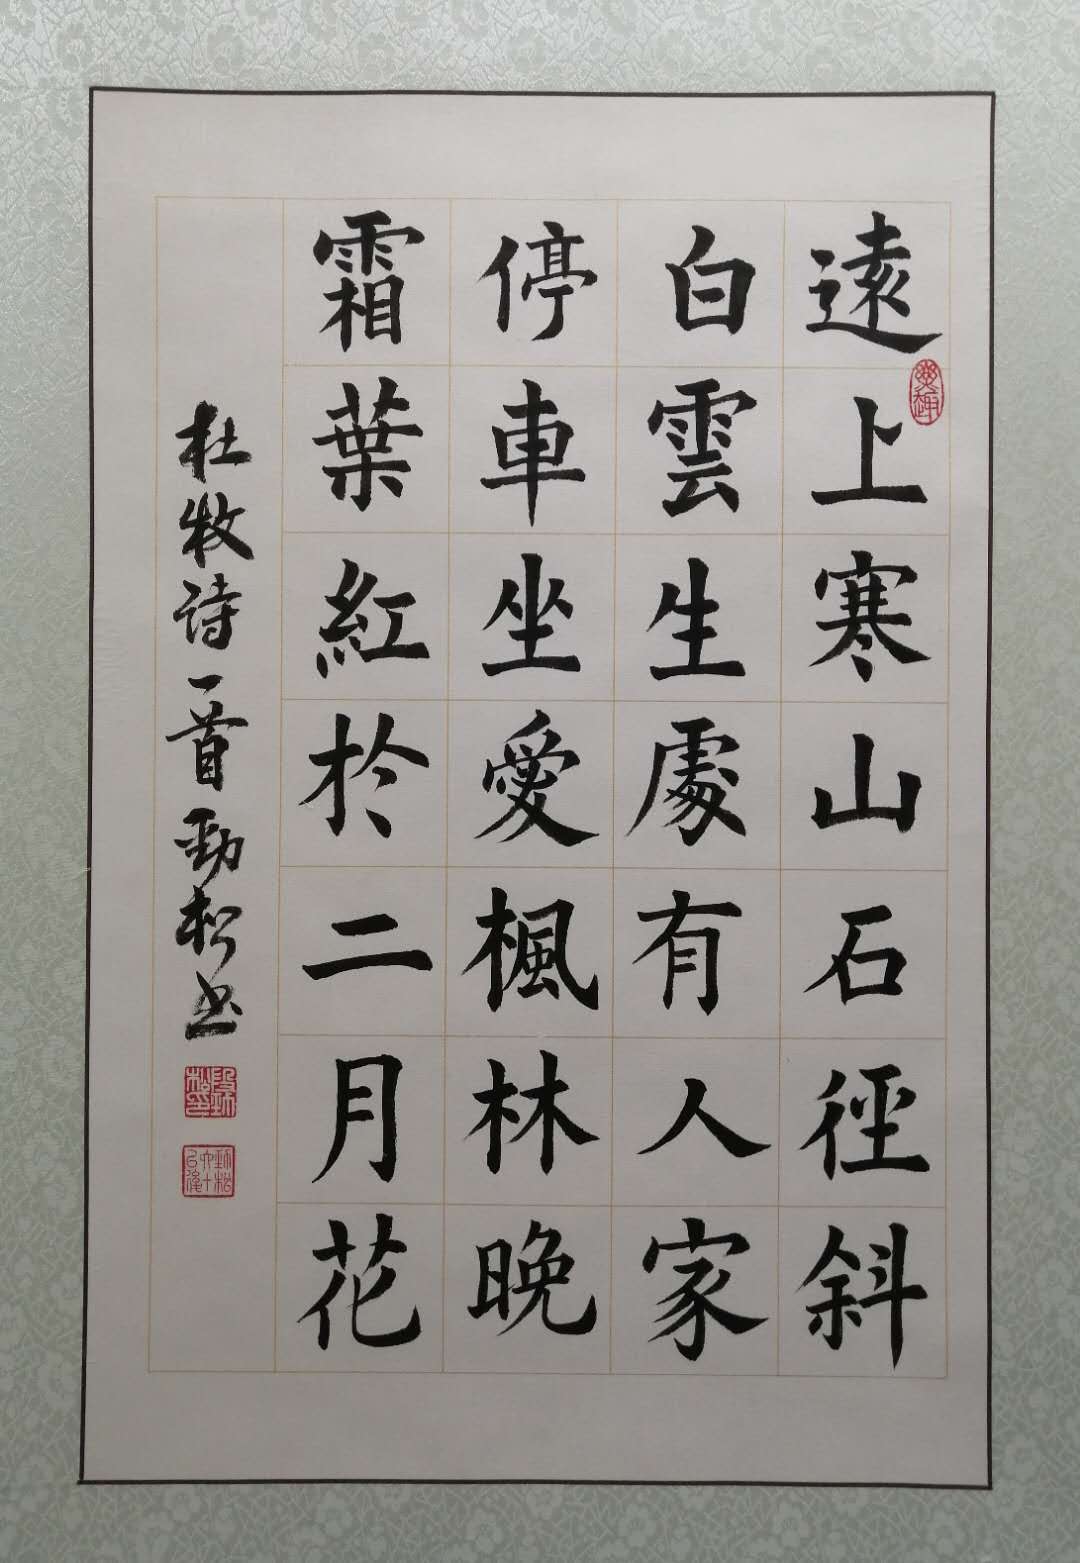 遠上寒山石徑斜
白雲生處有人家
停車坐愛楓林晚
霜葉紅於二月花
杜牧诗一首勁松书